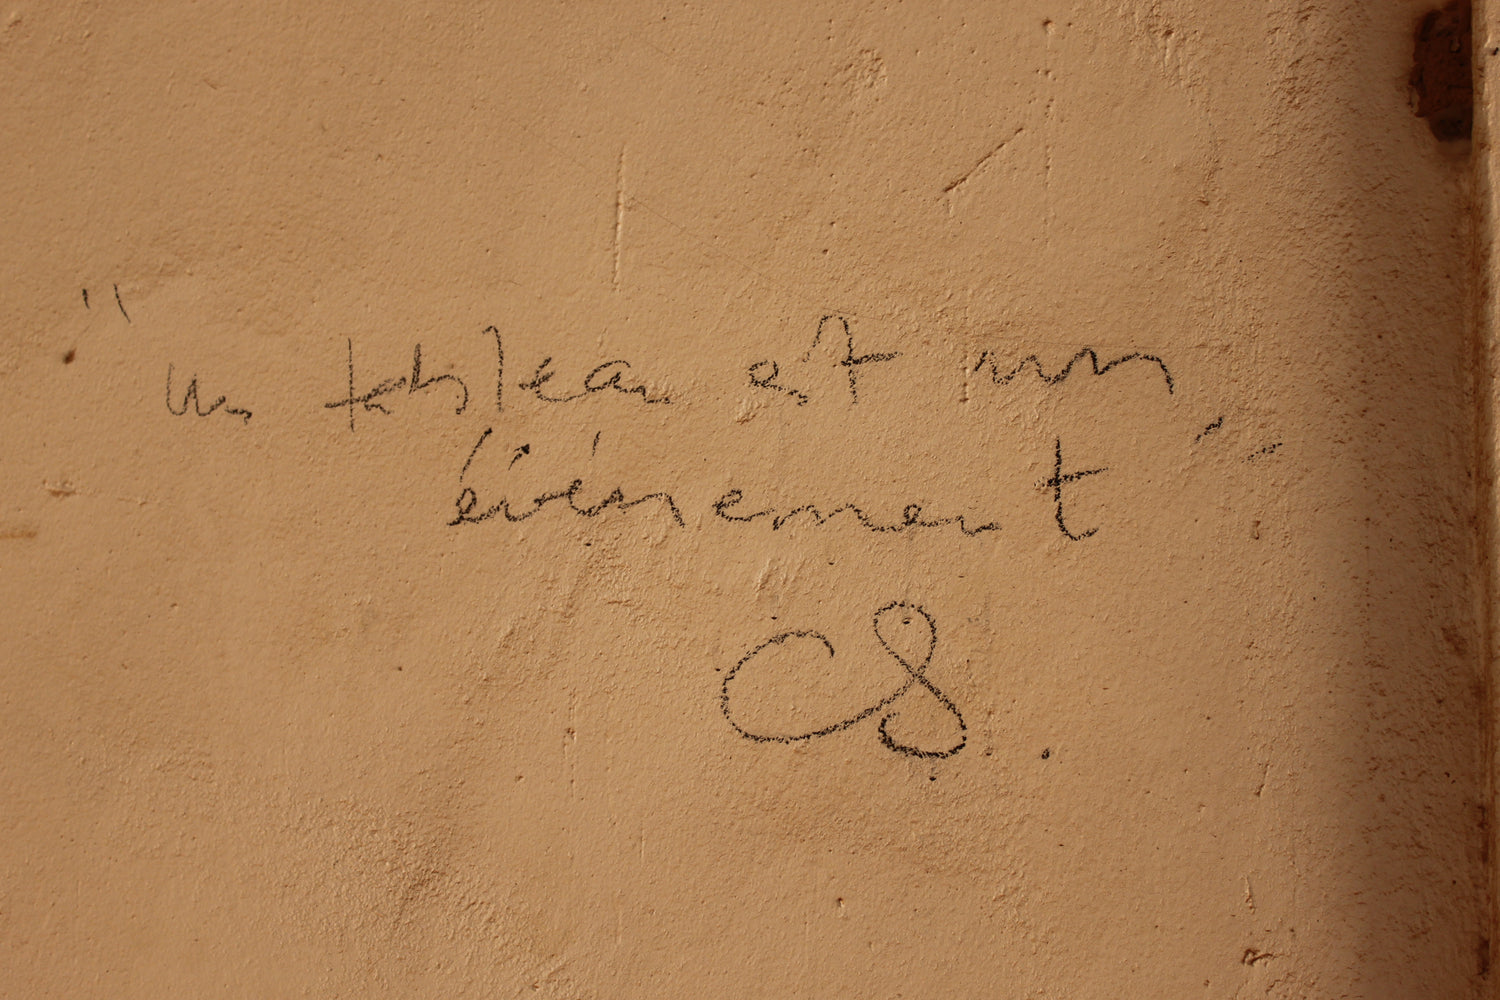 "Un tableau est un
événement"
CS.